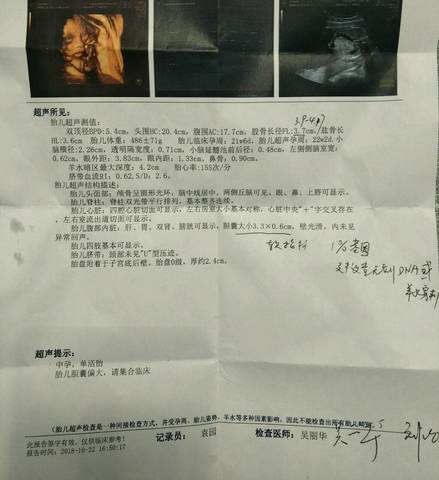 超声所见:
胎儿超声测值:
双顶径BPD:5.4cm, 头围HC:20.4cm, 腹围AC:17.7cm, 股骨长径FL:3.7cm, 肱骨长
HL:3.6cm 胎儿体重: 486±71g 胎儿临床孕周: 21w6d, 胎儿超声孕周: 22w2d, 小
脑横径:2.26cm, 透明隔宽度: 0.71cm, 小脑延髓池前后径: 0.48cm, 左侧侧脑室宽:
0.62cm, 眼外距: 3.83cm, 眼内距: 1.33cm, 鼻骨: 0.90cm.
羊水暗区最大深度: 4.2cm 胎心率:155次/分
脐带血流RI: 0.62, S/D: 2.6.
胎儿超声结构描述:
胎儿头面部: 颅骨呈圆形光环, 脑中线居中, 两侧丘脑可见, 眼、鼻、上唇可显示.
胎儿脊柱: 脊柱双光带平行排列, 基本整齐连续.
胎儿心脏: 四腔心脏切面可显示, 左右房室大小基本对称, 心脏中央"+"字交叉存在
, 左右室流出道切面可显示.
胎儿腹部内脏: 肝、胃、双肾、膀胱可显示, 胆囊大小3.3×0.6cm, 壁光滑, 内未见
异常回声.
胎儿四肢基本可显示.
胎儿脐带: 颈部未见"U"型压迹.
胎盘附着于子宫底后壁, 胎盘0级, 厚约2.4cm.
3.9-4.7
软指标
DNA或
羊水穿刺
超声提示:
中孕, 单活胎
胎儿胆囊偏大, 请集合临床
(胎儿超声检查是一种间接检查方式, 并受孕周、胎儿姿势、羊水等多种因素影响, 因此不能检查出所有胎儿畸形.
此报告签字有效, 仅供临床参考!
记录员: 袁园
检查医师: 吴丽华
报告时间: 2018-10-22 16:50:17